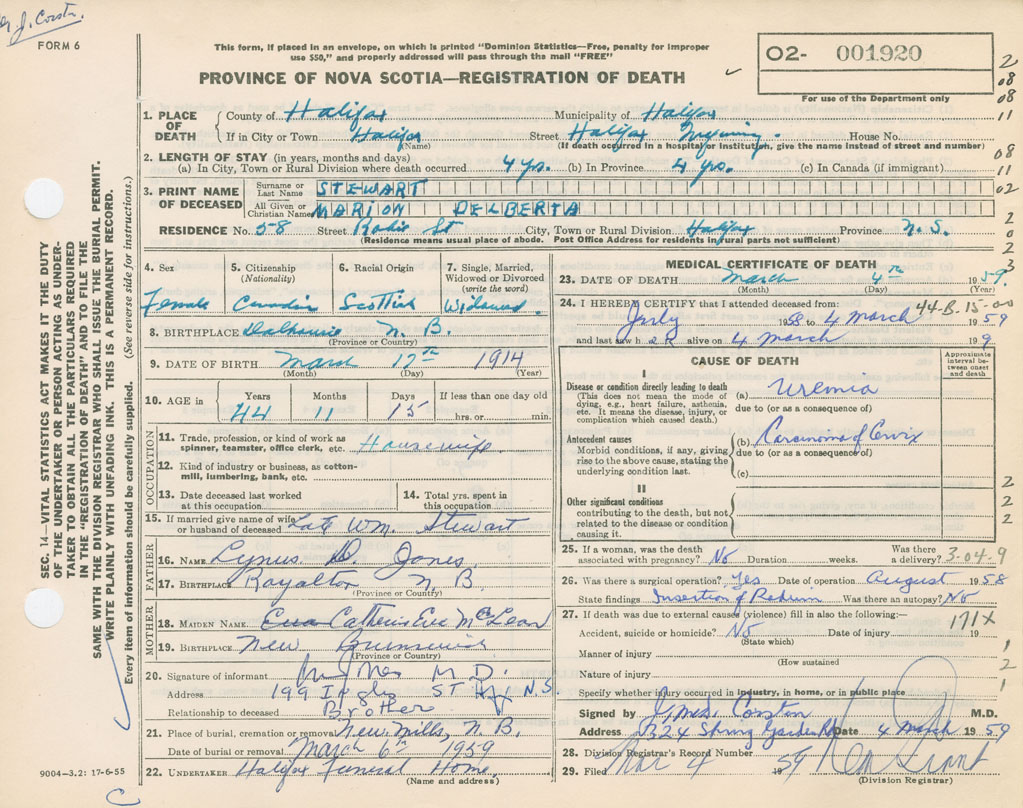 J. Corstn
FORM 6
This form, if placed in an envelope, on which is printed "Dominion Statistics—Free, penalty for improper
use $50," and properly addressed will pass through the mail "FREE"
PROVINCE OF NOVA SCOTIA—REGISTRATION OF DEATH
02- 001920
For use of the Department only
2
08
08
11
08
11
02
2
0
2
3
SEC. 14—VITAL STATISTICS ACT MAKES IT THE DUTY
OF THE UNDERTAKER OR PERSON ACTING AS UNDER-
TAKER TO OBTAIN ALL THE PARTICULARS REQUIRED
IN THE "REGISTRATION OF DEATH" AND TO FILE THE
SAME WITH THE DIVISION REGISTRAR WHO SHALL ISSUE THE BURIAL PERMIT.
WRITE PLAINLY WITH UNFADING INK. THIS IS A PERMANENT RECORD.
Every item of information should be carefully supplied. (See reverse side for instructions.)
1. PLACE OF DEATH
County of Halifax Municipality of Halifax
If in City or Town Halifax Street Halifax Infirmary. House No.
(Name) (If death occurred in a hospital or institution, give the name instead of street and number)
2. LENGTH OF STAY (in years, months and days)
(a) In City, Town or Rural Division where death occurred 4 yrs. (b) In Province 4 yrs. (c) In Canada (if immigrant)
3. PRINT NAME OF DECEASED
Surname or Last Name STEWART
All Given or Christian Names MARION DELBERTA
RESIDENCE No. 58 Street Robie St City, Town or Rural Division Halifax Province N.S.
(Residence means usual place of abode. Post Office Address for residents in rural parts not sufficient)
4. Sex
Female
5. Citizenship
(Nationality)
Canadian
6. Racial Origin
Scottish
7. Single, Married,
Widowed or Divorced
(write the word)
Widowed
8. BIRTHPLACE Dalhousie N. B.
(Province or Country)
9. DATE OF BIRTH March 17th 1914
(Month) (Day) (Year)
10. AGE in Years Months Days If less than one day
44 11 15 hrs. or min.
OCCUPATION
11. Trade, profession, or kind of work as
spinner, teamster, office clerk, etc. Housewife
12. Kind of industry or business, as cotton-
mill, lumbering, bank, etc.
13. Date deceased last worked
at this occupation
14. Total yrs. spent in
this occupation
15. If married give name of wife
or husband of deceased Late Wm. Stewart
FATHER
16. NAME Lynus D. Jones
17. BIRTHPLACE Royalton N B
(Province or Country)
MOTHER
18. MAIDEN NAME Eva Catherine Eva McLean
19. BIRTHPLACE New Brunswick
(Province or Country)
20. Signature of informant M D.
Address 199 Inglis ST Hfx N.S.
Relationship to deceased Brother
21. Place of burial, cremation or removal New Mills, N. B.
Date of burial or removal March 6th 1959
22. UNDERTAKER Halifax Funeral Home
(Name and address)
9004—3.2: 17-6-55
C
MEDICAL CERTIFICATE OF DEATH
23. DATE OF DEATH March 4th 1959.
(Month) (Day)
24. I HEREBY CERTIFY that I attended deceased from: 44-B-15-00
July 1958 to 4 March 1959
and last saw her alive on 4 March 199
CAUSE OF DEATH
Approximate interval between onset and death
I
Disease or condition directly leading to death
(This does not mean the mode of
dying, e.g., heart failure, asthenia,
etc. It means the disease, injury, or
complication which caused death.)
(a) Uremia
due to (or as a consequence of)
Antecedent causes
Morbid conditions, if any, giving
rise to the above cause, stating the
underlying condition last.
(b) Carcinoma of Cervix
due to (or as a consequence of)
(c)
II
Other significant conditions
contributing to the death, but not
related to the disease or condition
causing it.
2
2
2
25. If a woman, was the death
associated with pregnancy? No Duration weeks. Was there
a delivery? 3-04-9
26. Was there a surgical operation? Yes Date of operation August 1958
State findings Insertion of Radium Was there an autopsy? No
27. If death was due to external causes (violence) fill in also the following:— 171X
Accident, suicide or homicide? No Date of injury 19
(State which)
Manner of injury 1
(How sustained
Nature of injury 2
Specify whether injury occurred in industry, in home, or in public place 1
Signed by James Corstn M.D.
Address 324 Spring Garden Rd Date 4 March 1959
28. Division Registrar's Record Number
29. Filed Mar 4 1959 Grant
(Division Registrar)